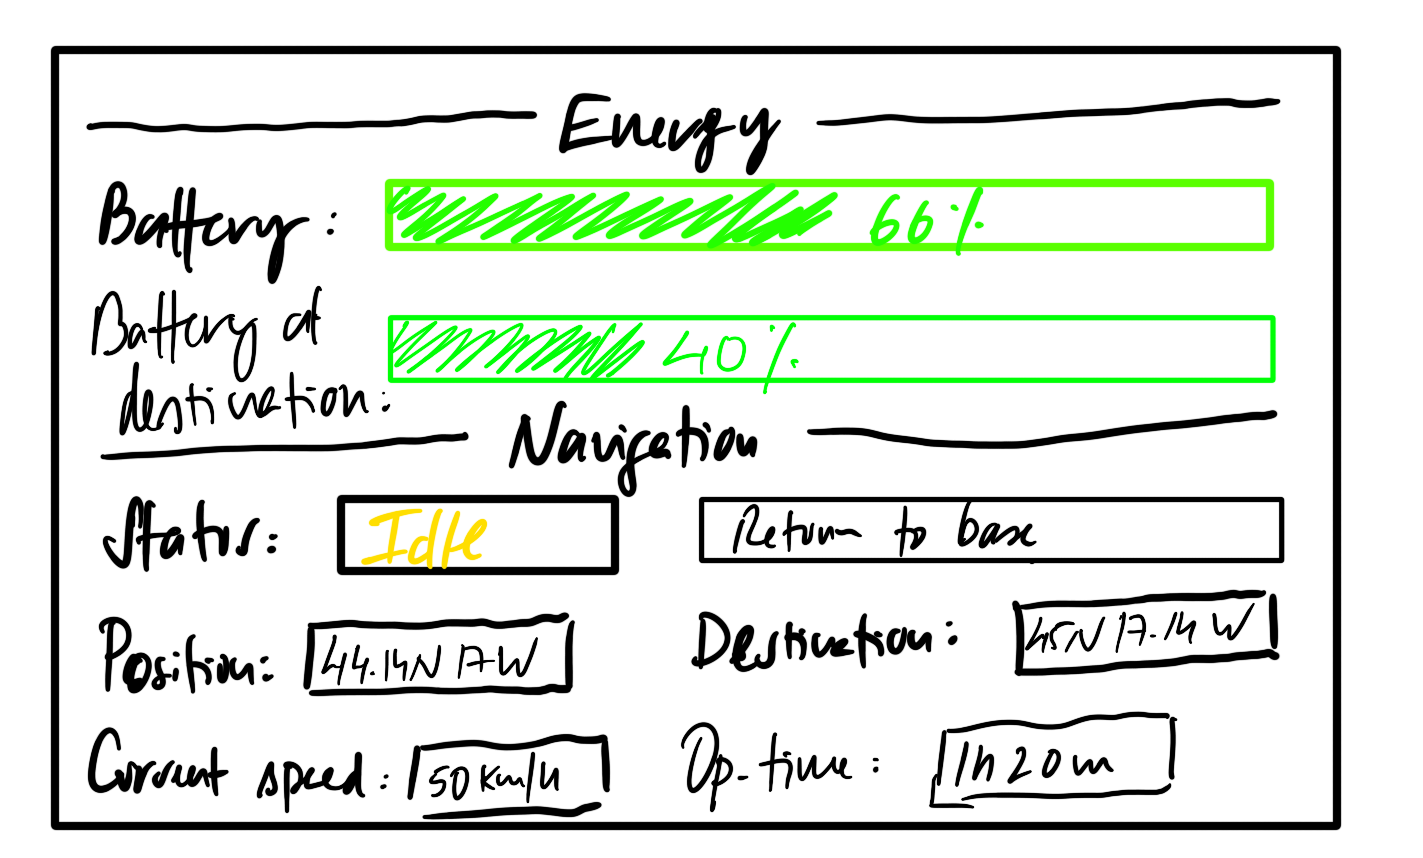 Energy
Battery: 66%
Battery at
destination: 40%
Navigation
Status: Idle Return to base
Position: 44.14N 17W Destination: 45N 17.14 W
Current speed: 50 km/h Op-time: 1h 20m